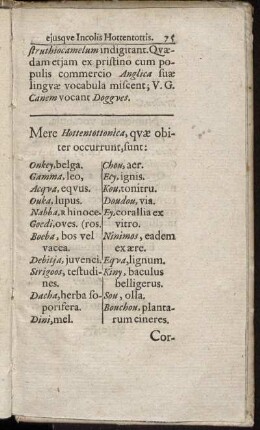 ejusqve Incolis Hottentottis. 75
struthiocamelum indigitant. Qvæ-
dam etjam ex pristino cum po-
pulis commercio Anglica suæ
lingvæ vocabula miscent; V. G.
Canem vocant Doggves.
Mere Hottentottonica, qvæ obi-
ter occurrunt, sunt:
Onkey, belga.
Gamma, leo,
Acqva, eqvus.
Ouka, lupus.
Nabba, rhinoce-
Goedi, oves. (ros.
Boeba, bos vel
vacca.
Debitja, juvenci.
Sirigoos, testudi-
nes.
Dacha, herba so-
porifera.
Dini, mel.
Chou, aer.
Ecy, ignis.
Kou, tonitru.
Doudou, via.
Ey, corallia ex
vitro.
Ninimos, eadem
ex ære.
Eqva, lignum.
Kiny, baculus
belligerus.
Sou, olla.
Bouchou, planta-
rum cineres.
Cor-